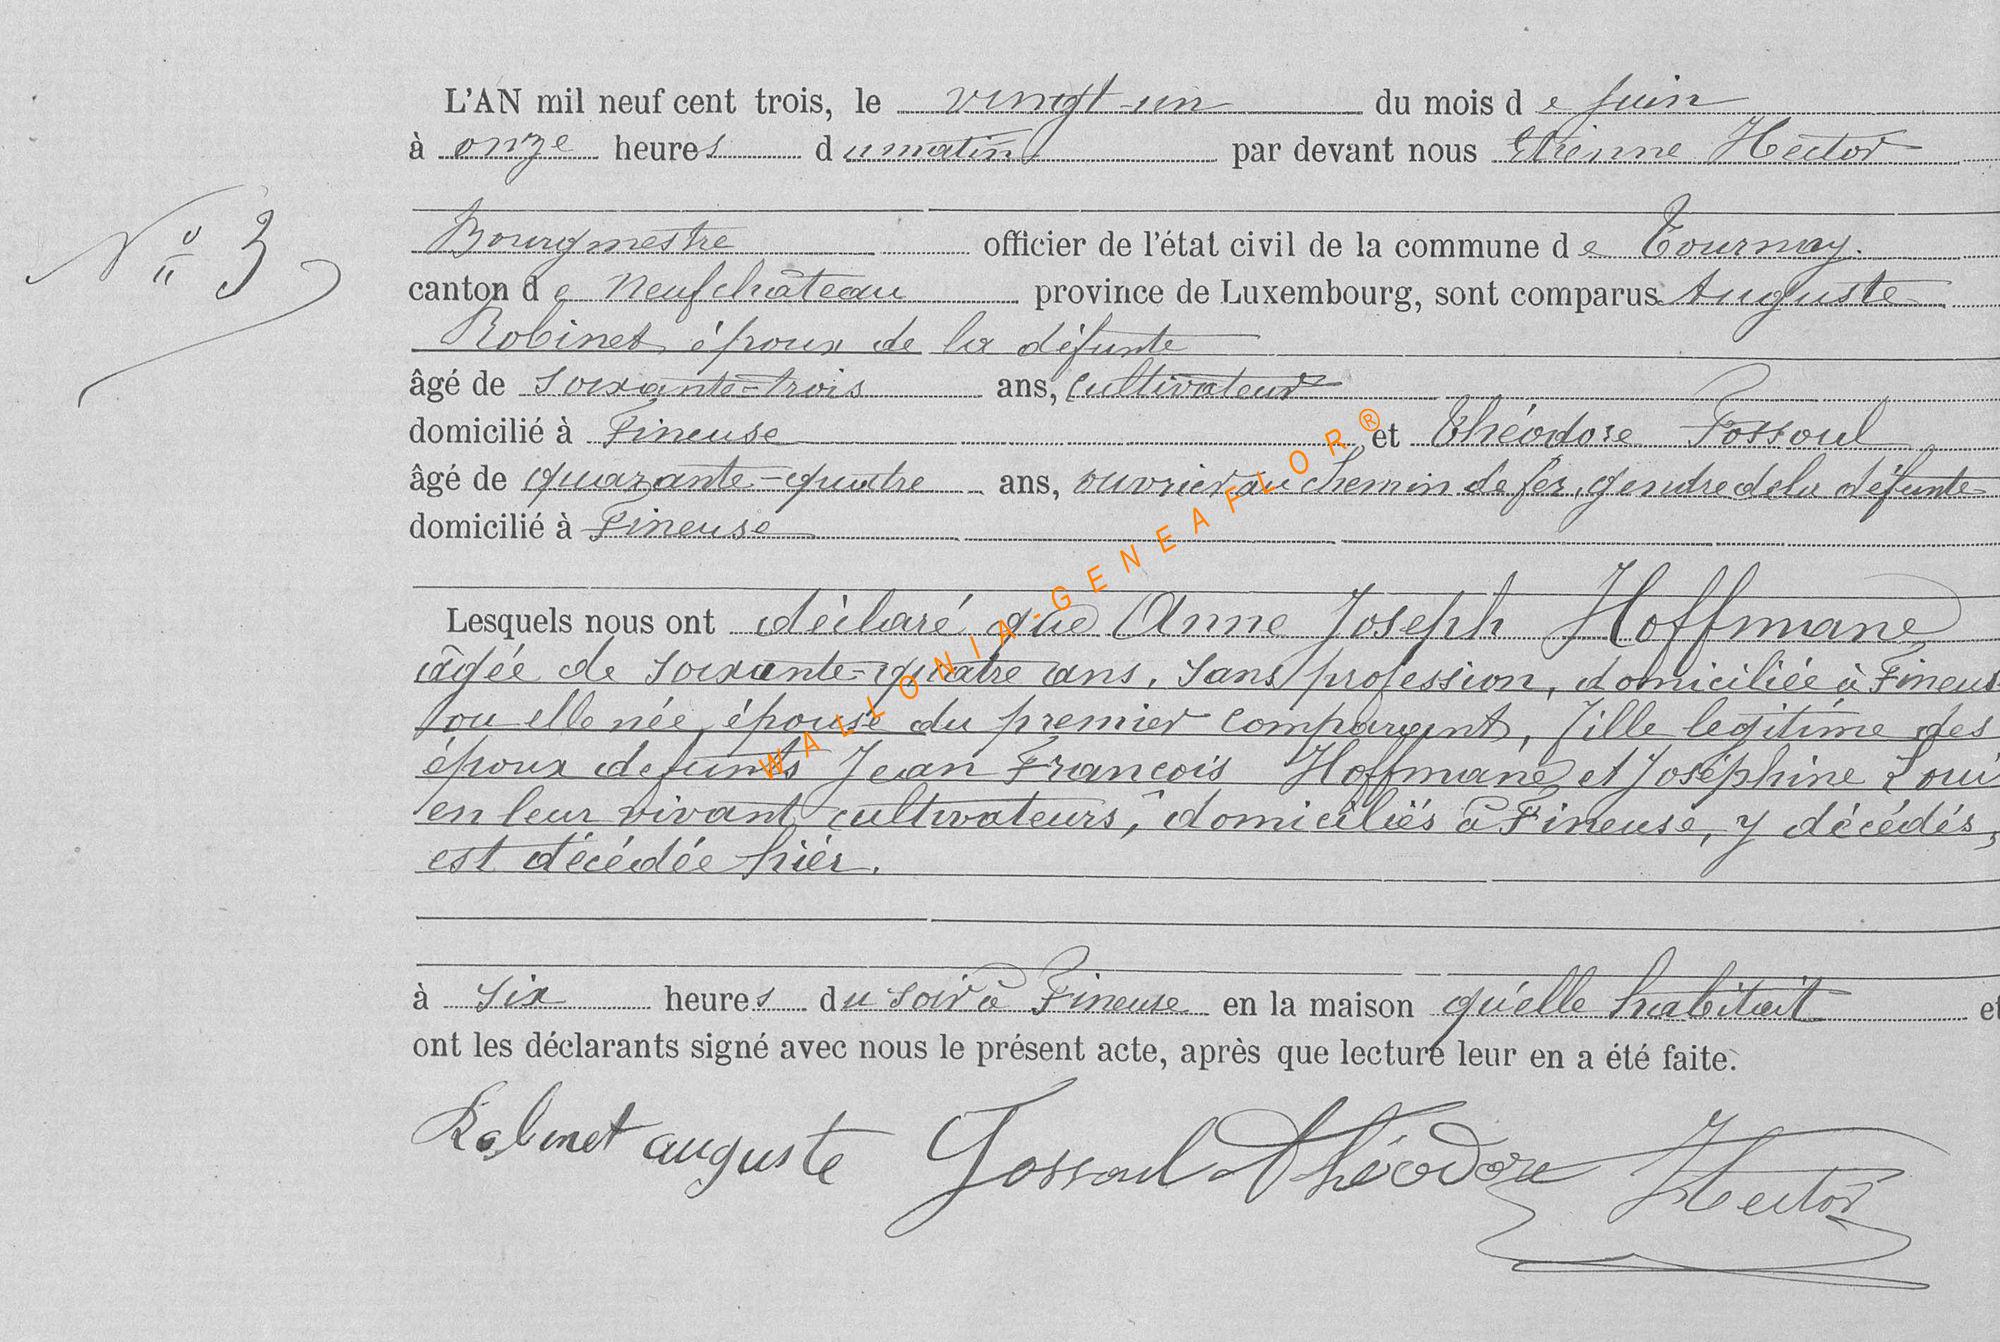 L'AN mil neuf cent trois, le vingt-un du mois de juin
à onze heures du matin par devant nous Etienne Hector
N° 3
Bourgmestre officier de l'état civil de la commune de Tournay.
canton de Neufchâteau province de Luxembourg, sont comparus Auguste
Robinet époux de la défunte
âgé de soixante-trois ans, cultivateur
domicilié à Fineuse et Théodore Fossoul
âgé de quarante-quatre ans, ouvrier au chemin de fer, gendre de la défunte
domicilié à Fineuse
Lesquels nous ont déclaré que Anne Joseph Hoffmane
âgée de soixante-quatre ans, sans profession, domiciliée à Fineus
ou elle née, épouse du premier comparant, fille legitime des
époux defunts Jean François Hoffmane et Joséphine Loui
en leur vivant cultivateurs, domiciliés à Fineuse, y décédés,
est décédée hier.
à six heures du soir à Fineuse en la maison qu'elle habitait et
ont les déclarants signé avec nous le présent acte, après que lecture leur en a été faite.
Robinet auguste Fossoul Théodore Hector
WALLONIA-GENEAFLOR®